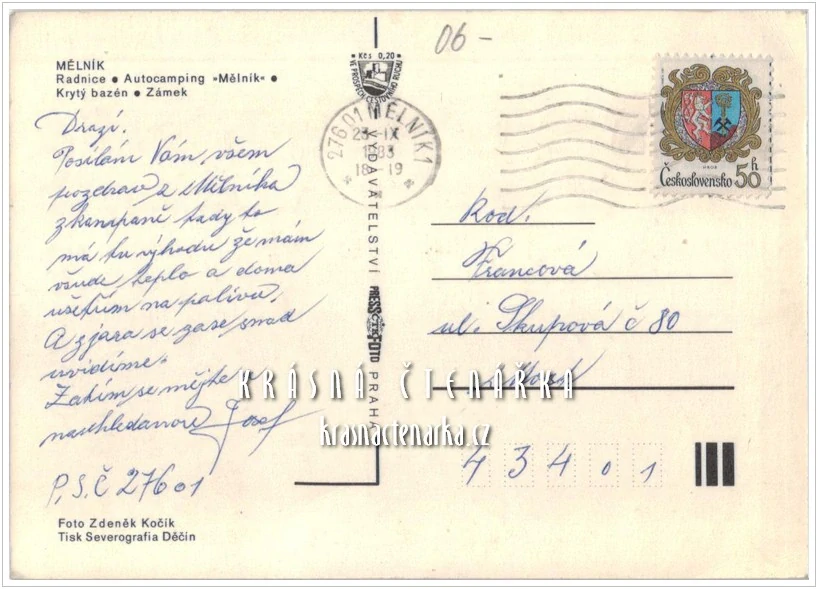 06-
MĚLNÍK
Radnice ● Autocamping »Mělník« ●
Krytý bazén ● Zámek
Kčs 0,20
VE PROSPĚCH CESTOVNÍHO RUCHU
276 01 MĚLNÍK 1
23.-IX
1983
18-19
Československo 50 h
Drazí.
Posílám Vám všem
pozdrav z Mělníka
z kampaně tady to
má tu výhodu že mám
všude teplo a doma
ušetřím na palivu.
A zjara se zase snad
uvidíme.
Zatím se mějte a
naschledanou Josef
P.S.Č 27601
Foto Zdeněk Kočík
Tisk Severografia Děčín
VYDAVATELSTVÍ PRESSFOTO PRAHA
Rod.
Francová
ul. Skupová č 80
Most
43401
KRÁSNÁ ČTENÁŘKA
krasnactenarka.cz